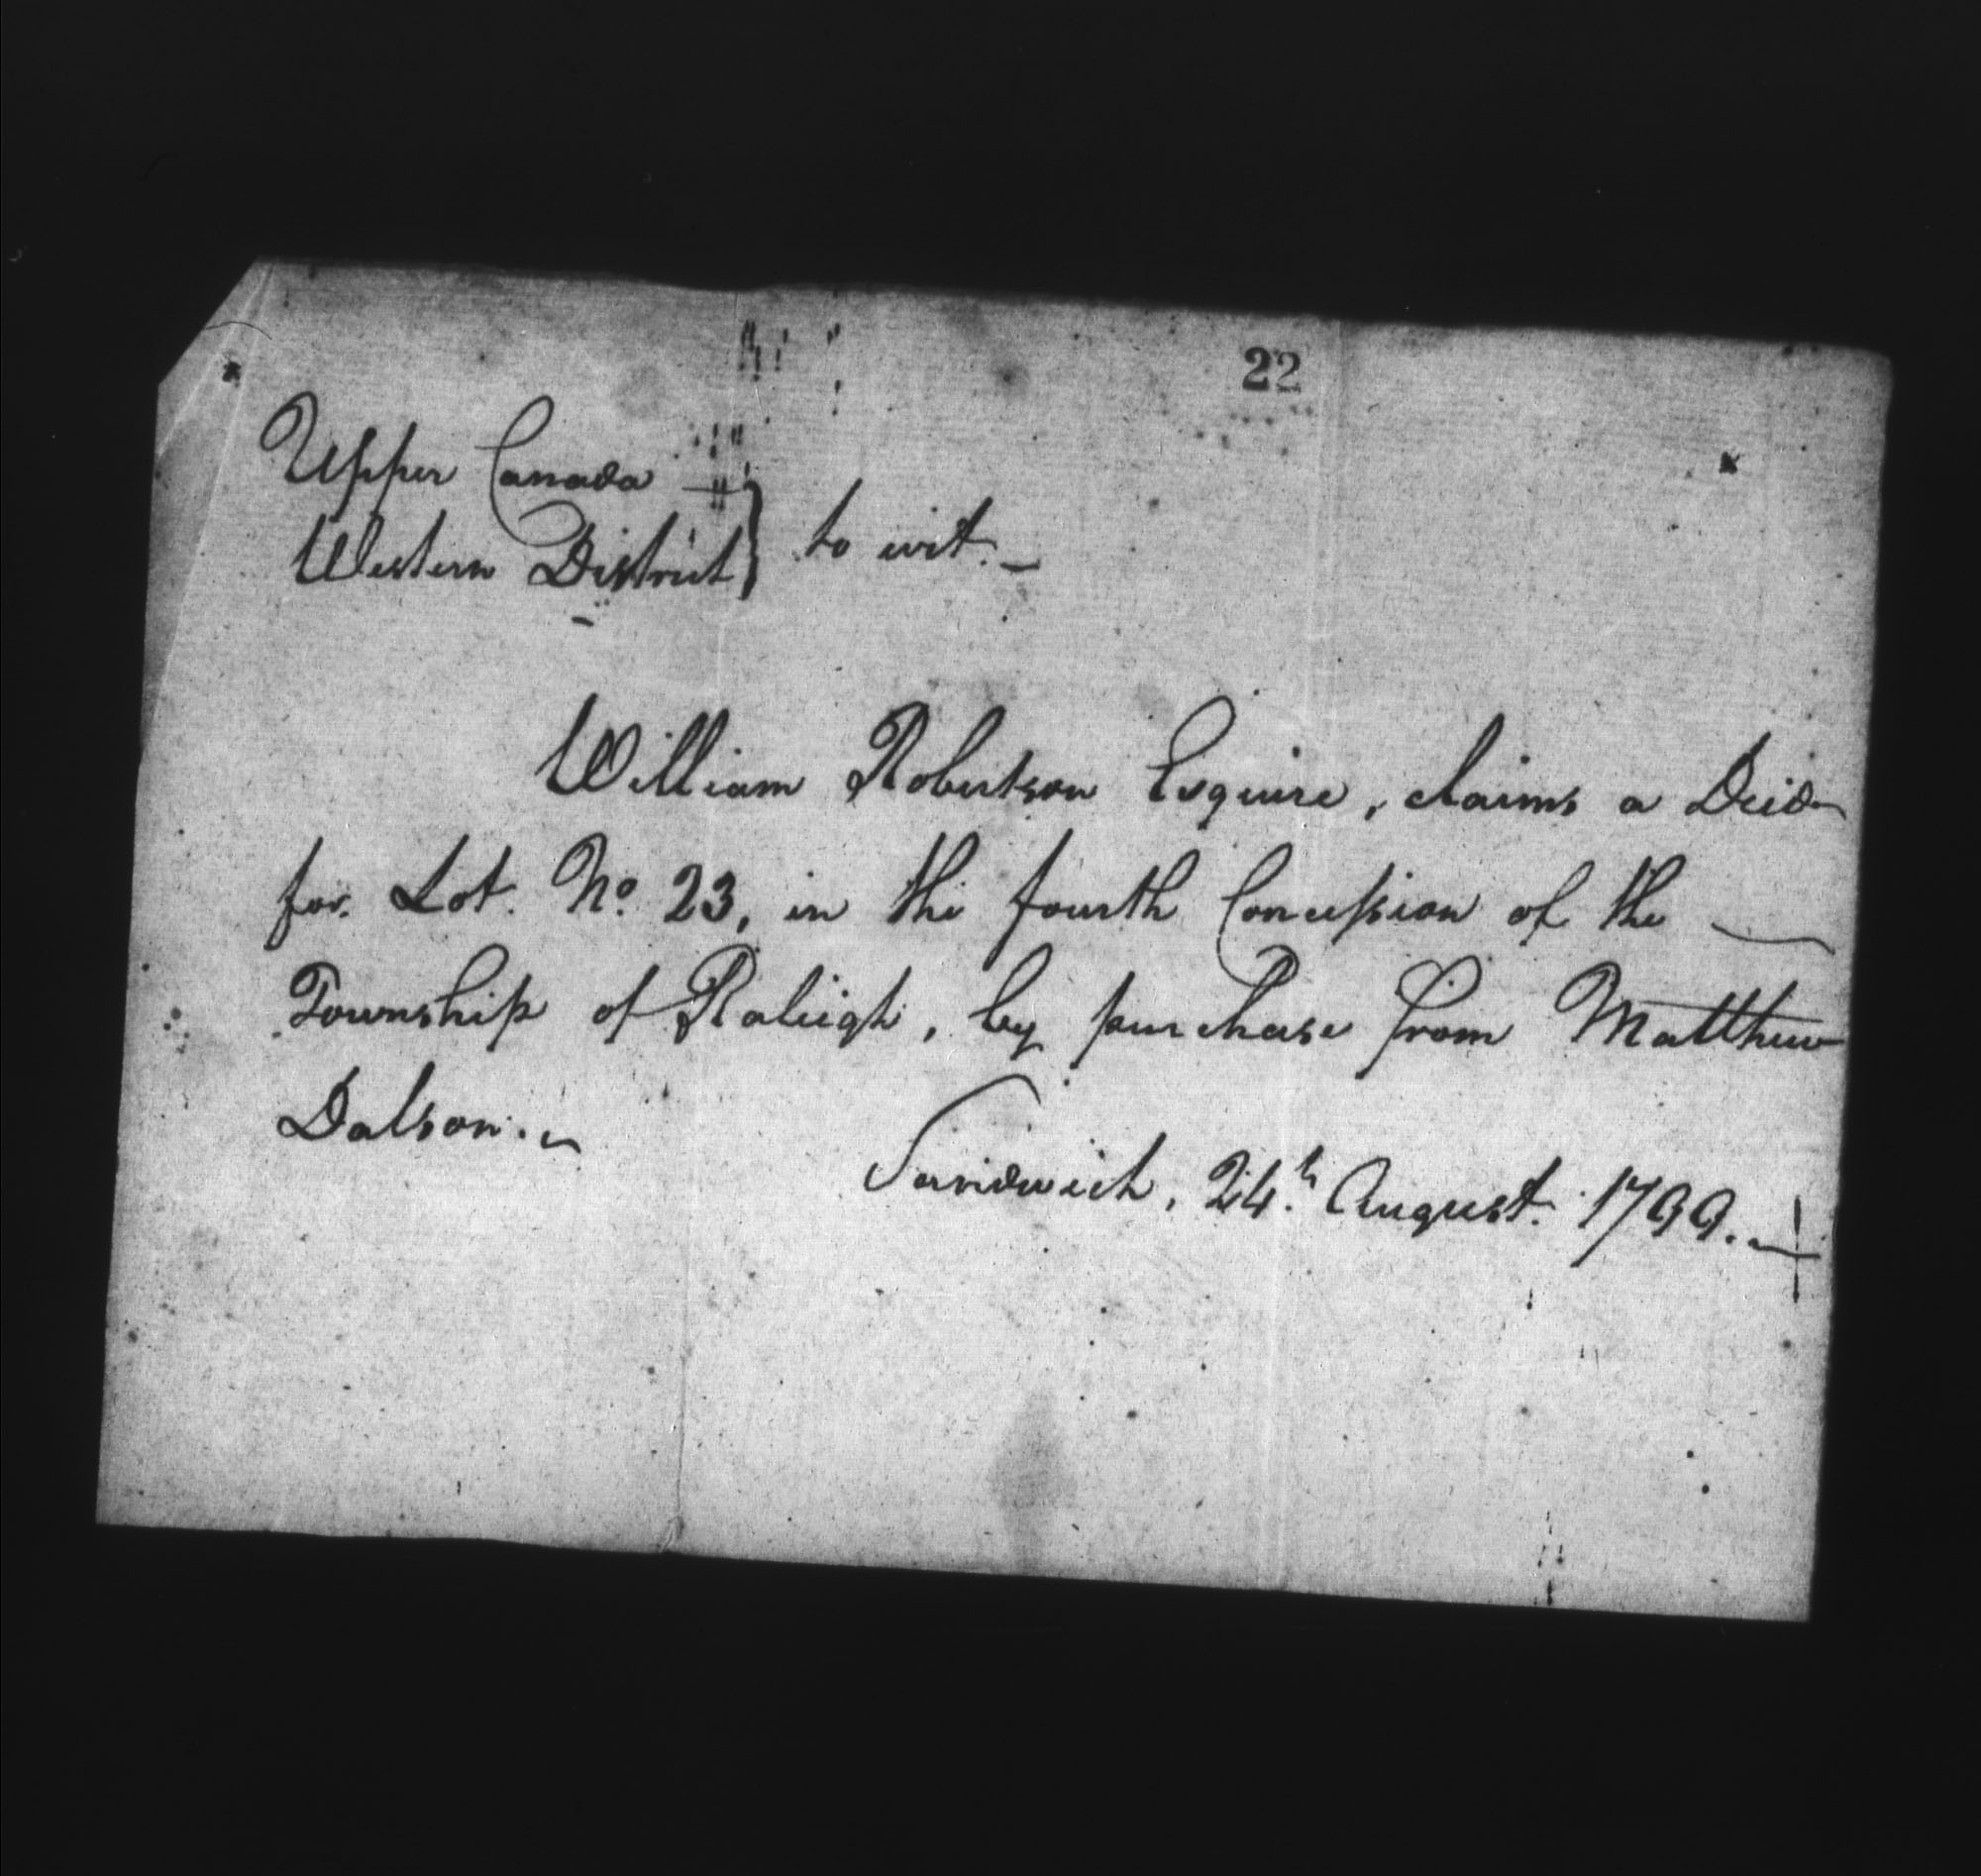 22
Upper Canada
Western District } to wit. —
William Robertson Esquire, claims a Deed
for Lot. No. 23, in the fourth Concession of the —
Township of Raleigh, by purchase from Matthew
Dalson. —
Sandwich, 24th August. 1799. —